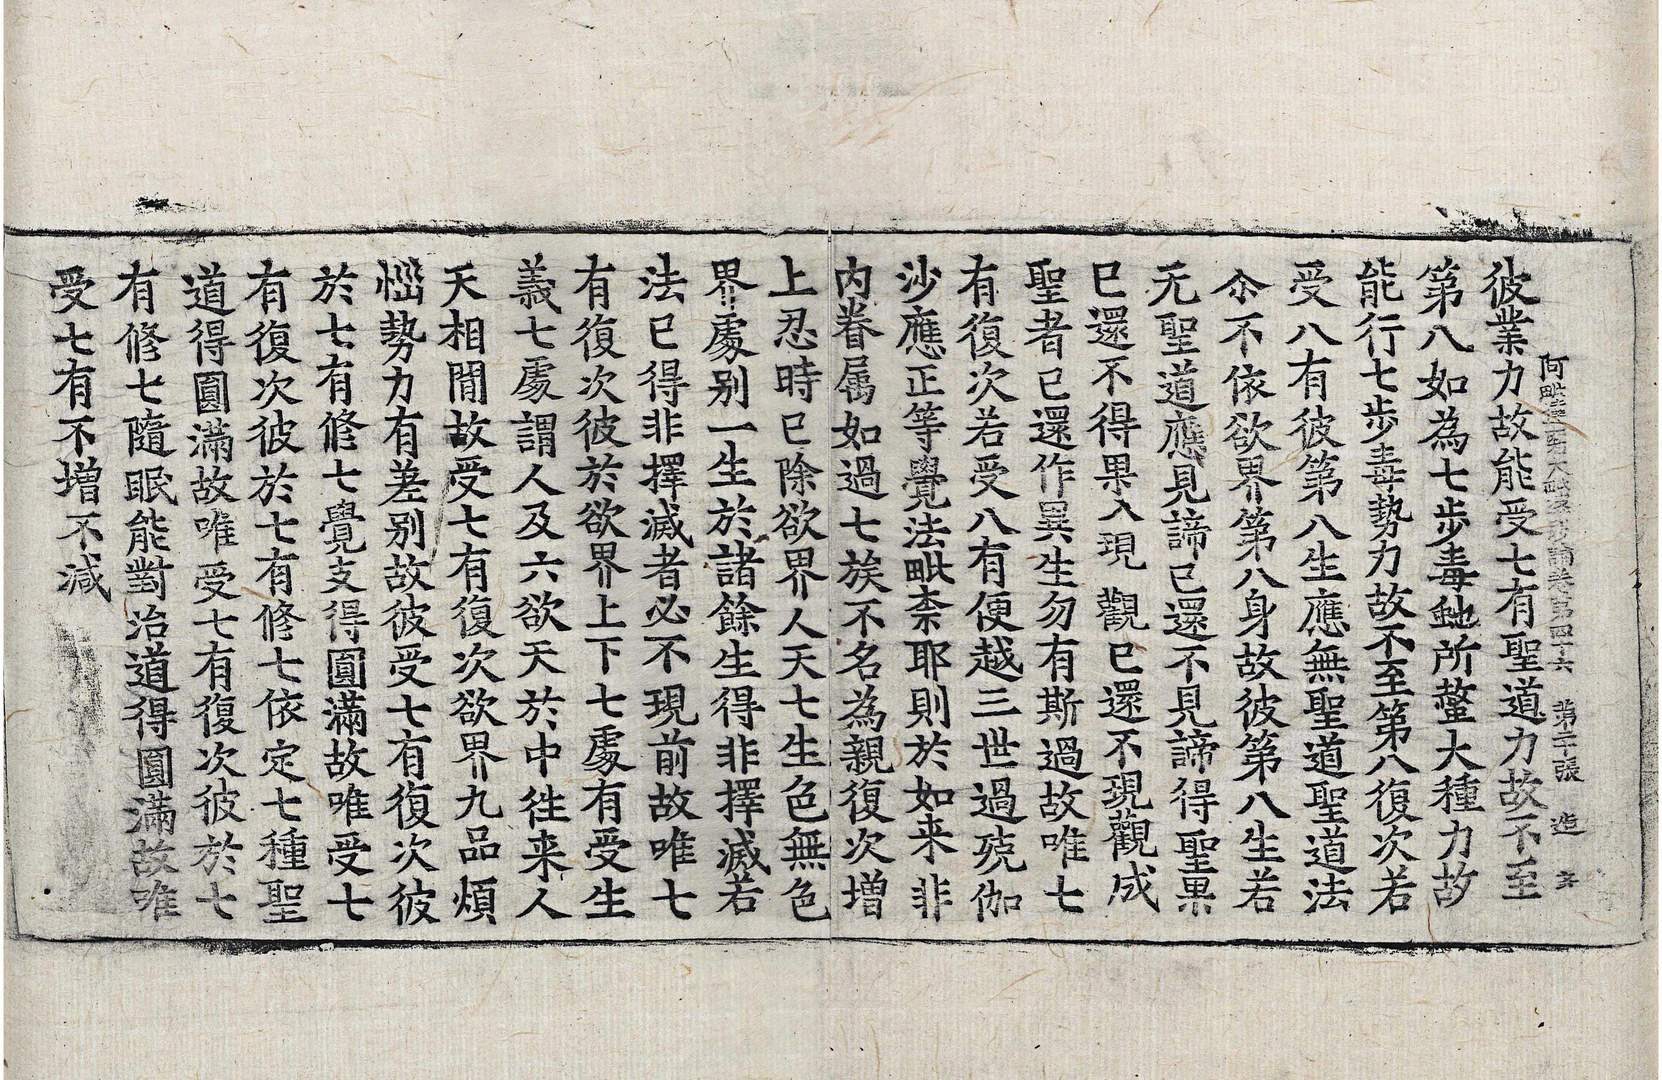 阿毗達磨大毗婆沙論卷第四十六 第二十張 造
彼業力故能受七有聖道力故不至
第八如為七步毒虵所螫大種力故
能行七步毒勢力故不至第八復次若
受八有彼第八生應無聖道聖道法
尒不依欲界第八身故彼第八生若
无聖道應見諦已還不見諦得聖果
已還不得果入現觀已還不現觀成
聖者已還作異生勿有斯過故唯七
有復次若受八有便越三世過殑伽
沙應正等覺法毗柰耶則於如来非
內眷属如過七族不名為親復次增
上忍時已除欲界人天七生色無色
界處別一生於諸餘生得非擇滅若
法已得非擇滅者必不現前故唯七
有復次彼於欲界上下七處有受生
義七處謂人及六欲天於中徃来人
天相閒故受七有復次欲界九品煩
惱勢力有差別故彼受七有復次彼
於七有修七覺支得圓滿故唯受七
有復次彼於七有修七依定七種聖
道得圓滿故唯受七有復次彼於七
有修七隨眠能對治道得圓滿故唯
受七有不增不減